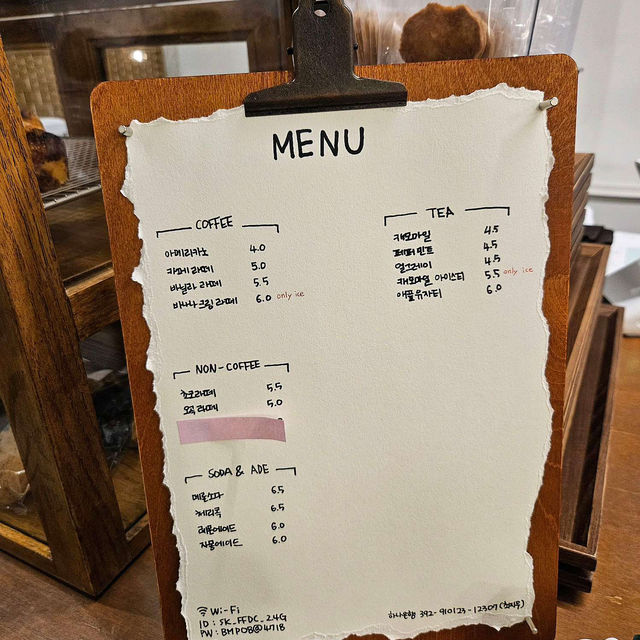 MENU
COFFEE
아메리카노 4.0
카페라떼 5.0
바닐라 라떼 5.5
바나나크림 라떼 6.0 only ice
NON-COFFEE
초코라떼 5.5
오곡라떼 5.0
SODA & ADE
메론소다 6.5
체리콕 6.5
레몬에이드 6.0
자몽에이드 6.0
TEA
캐모마일 4.5
페퍼민트 4.5
얼그레이 4.5
캐모마일 아이스티 5.5 only ice
애플유자티 6.0
Wi-Fi
ID : SK_FFDC_2.4G
PW : BMP0B@4718
하나은행 392-910123-12307